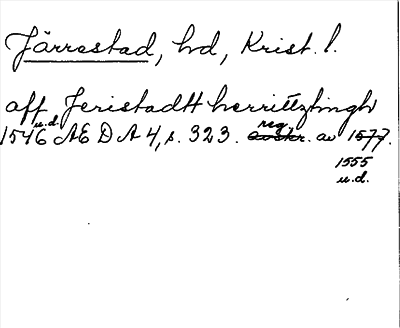 Järrestad, hd, Krist. l.
aff Jeristadtt herritztingh
1546 u.d. AEDA 4, s. 323. reg. av 1577.
1555
u.d.